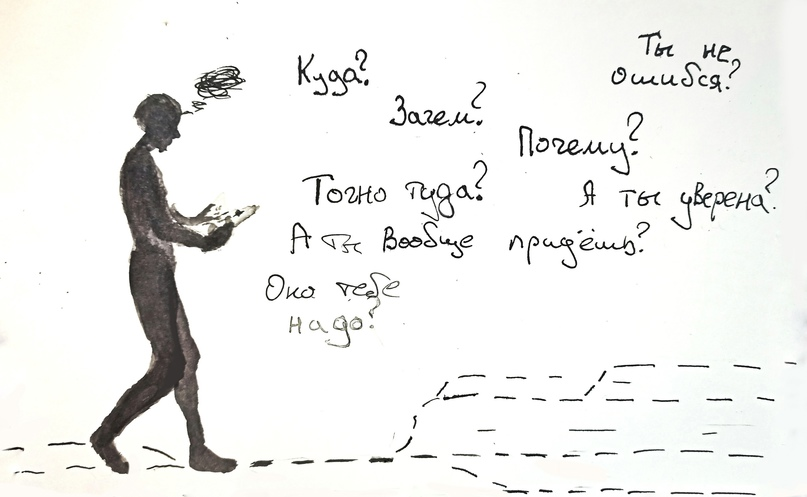 Куда?
Ты не
ошибся?
Зачем?
Почему?
Точно туда?
А ты уверена?
А ты вообще придёшь?
Оно тебе
надо?